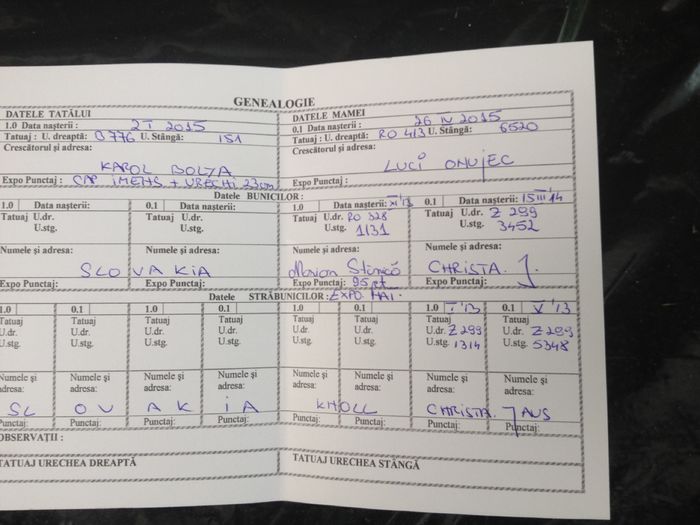 GENEALOGIE
DATELE TATĂLUI
1.0 Data nașterii: 2 I 2015
Tatuaj : U. dreaptă: B 776 U. Stângă: 151
Crescătorul și adresa:
KAROL BOLYA
Expo Punctaj : CAP IMENS + URECHI 23cm
DATELE MAMEI
0.1 Data nașterii : 26 IV 2015
Tatuaj : U. dreaptă: RO 413 U. Stângă: 6520
Crescătorul și adresa:
LUCI ONUJEC
Expo Punctaj :
Datele BUNICILOR :
1.0 Data nașterii: 0.1 Data nașterii: 1.0 Data nașterii: XI '13 0.1 Data nașterii: 15 III 14
Tatuaj U.dr. Tatuaj U.dr. Tatuaj U.dr. RO 328 Tatuaj U.dr. Z 299
U.stg. U.stg. U.stg. 1131 U.stg. 3452
Numele și adresa: Numele și adresa: Numele și adresa: Numele și adresa:
SLOVAKIA Marian Stancó CHRISTA. J.
Expo Punctaj: Expo Punctaj: Expo Punctaj: 95 pt. Expo Punctaj:
Datele STRĂBUNICILOR : EXPO MAI.
1.0 0.1 1.0 0.1 1.0 0.1 1.0 I '13 0.1 V '13
Tatuaj Tatuaj Tatuaj Tatuaj Tatuaj Tatuaj Tatuaj Tatuaj
U.dr. U.dr. U.dr. U.dr. U.dr. U.dr. U.dr. Z 299 U.dr. Z 299
U.stg. U.stg. U.stg. U.stg. U.stg. U.stg. U.stg. 1314 U.stg. 5348
Numele și Numele și Numele și Numele și Numele și Numele și Numele și Numele și
adresa: adresa: adresa: adresa: adresa: adresa: adresa: adresa:
SLOVAKIA KHOLL CHRISTA. JAUS
Punctaj: Punctaj: Punctaj: Punctaj: Punctaj: Punctaj: Punctaj: Punctaj:
OBSERVAȚII :
TATUAJ URECHEA DREAPTĂ TATUAJ URECHEA STÂNGĂ